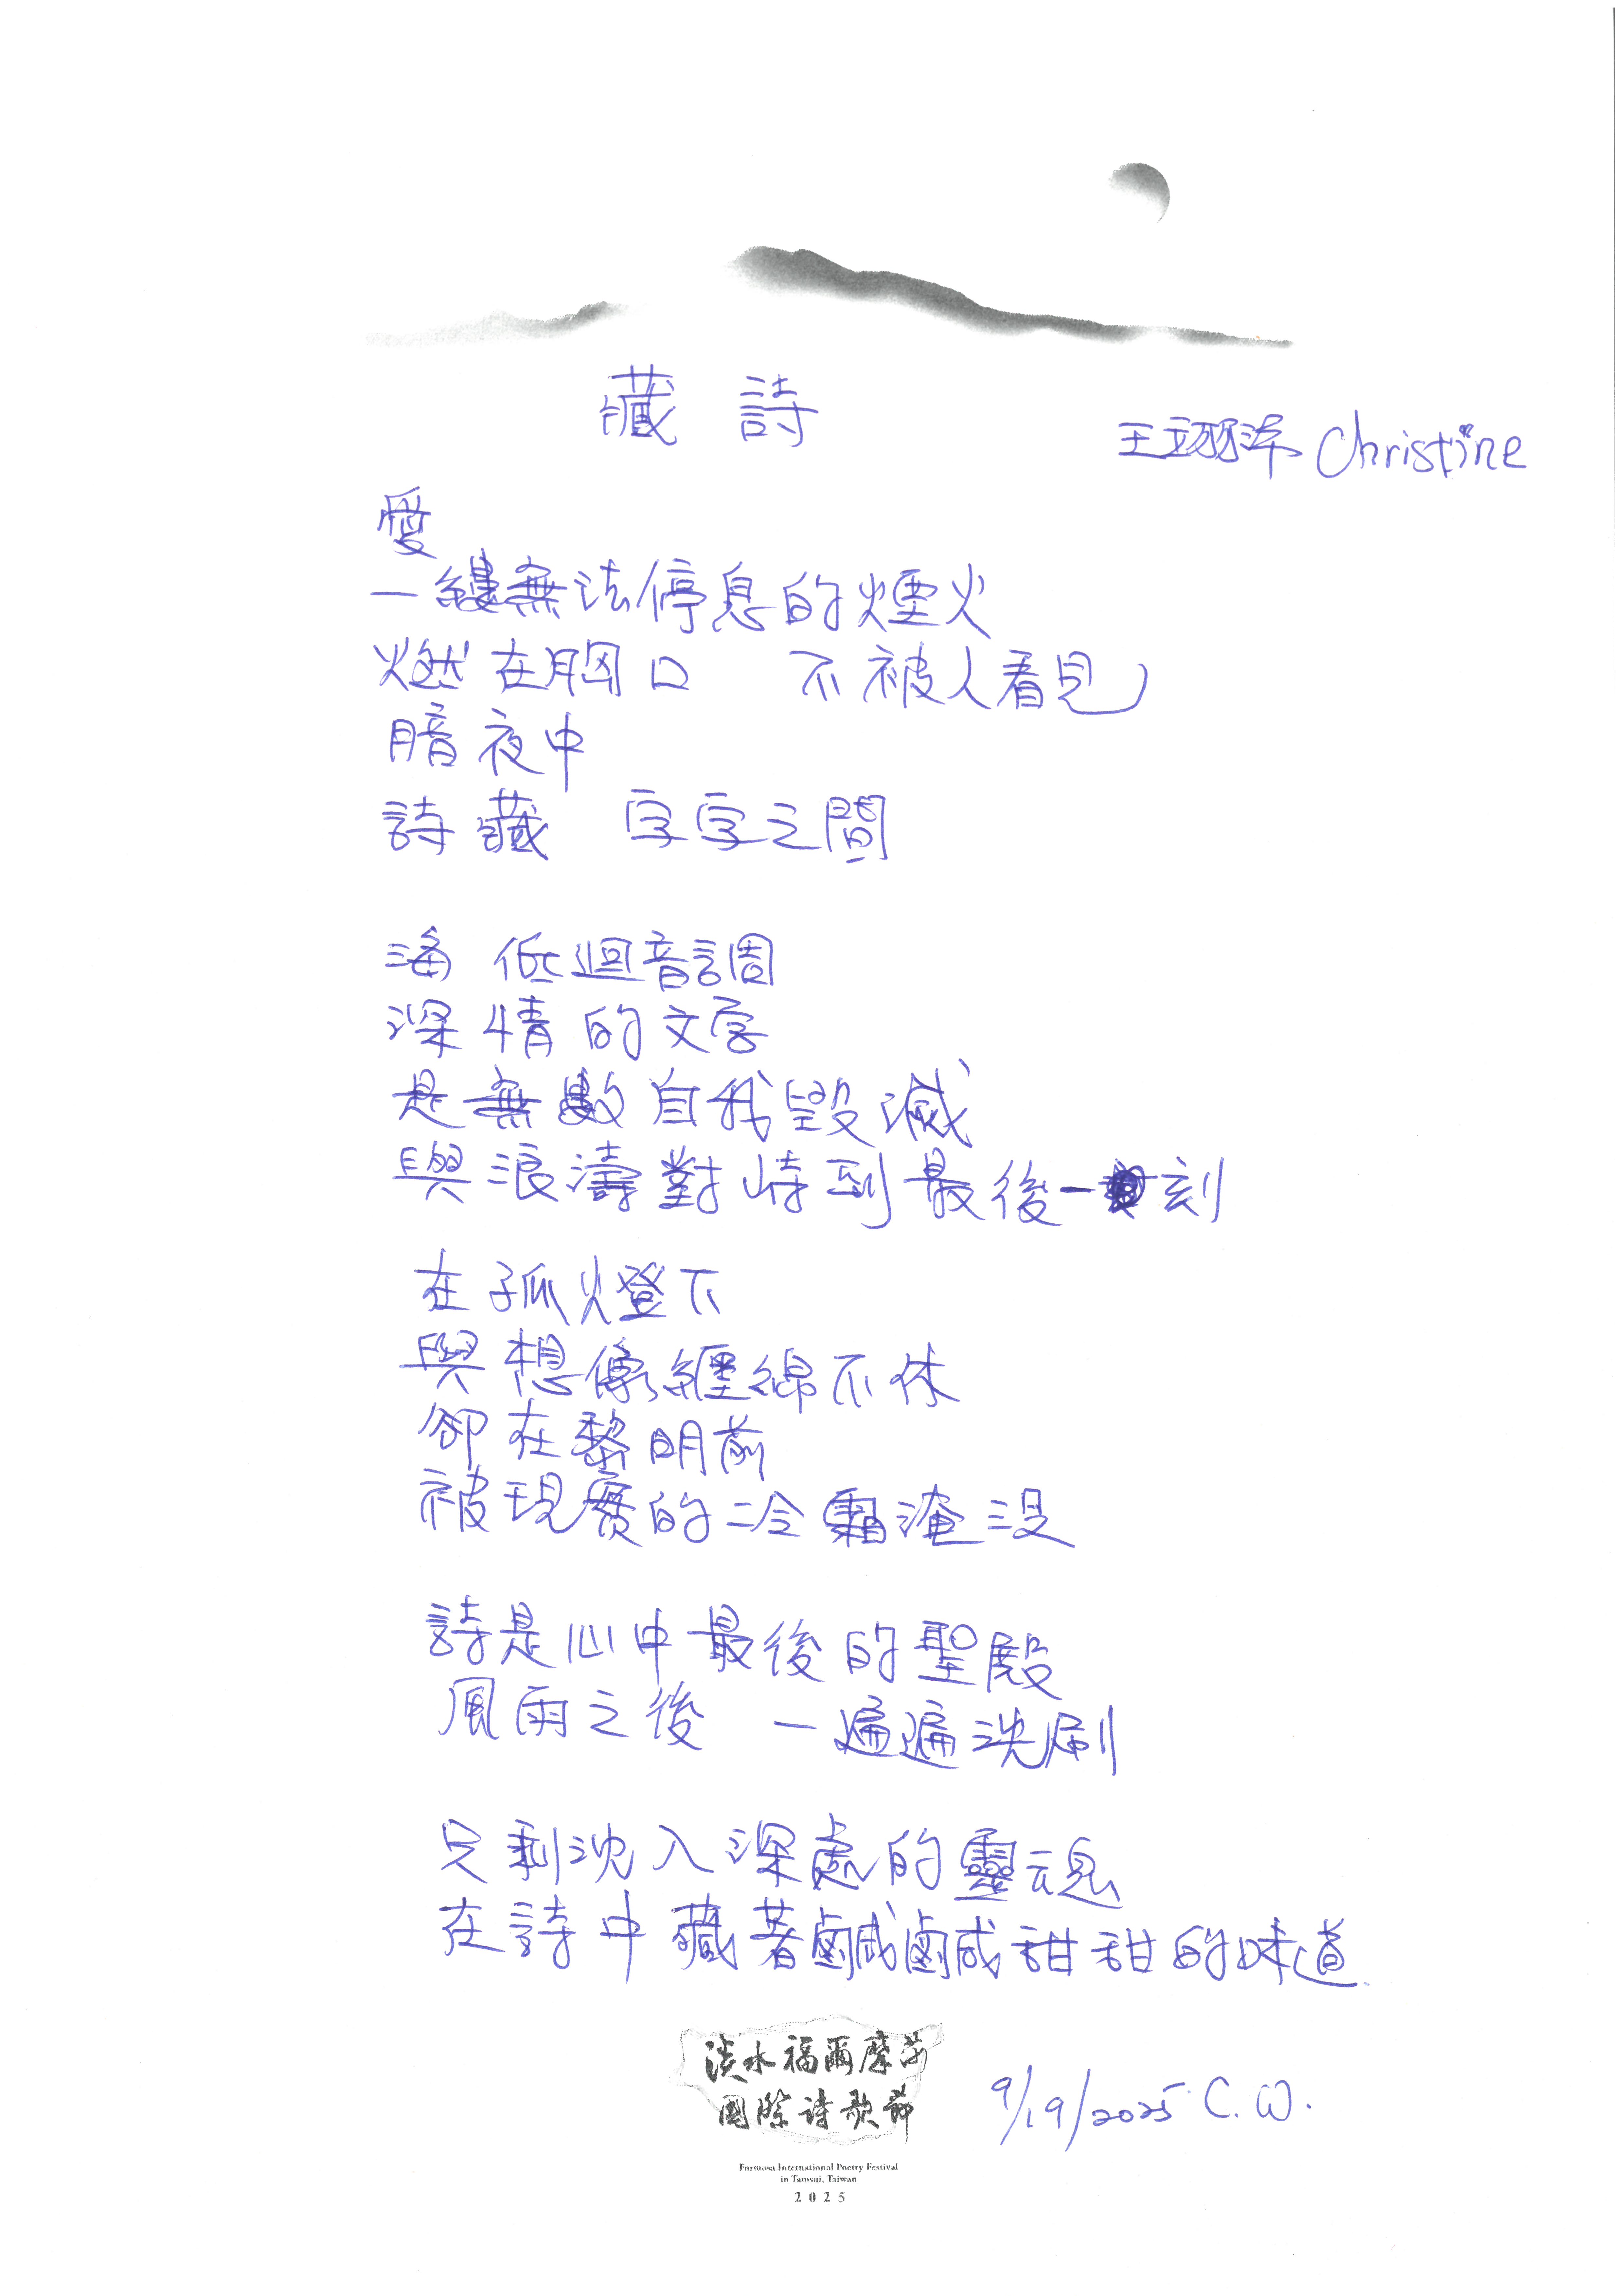 藏 詩
王翊萍 Christine
愛
一縷無法停息的煙火
燃在胸口 不被人看見
暗夜中
詩藏 字字之間
海 低迴音調
深情的文字
是無數自我毀滅
與浪濤對峙到最後一刻
在孤燈下
與想像纏綿不休
卻在黎明前
被現實的冷霜淹沒
詩是心中最後的聖殿
風雨之後 一遍遍洗刷
只剩沈入深處的靈魂
在詩中藏著鹹鹹甜甜的味道
淡水福爾摩莎
國際詩歌節
9/19/2025 C.W.
Formosa International Poetry Festival
in Tamsui, Taiwan
2025